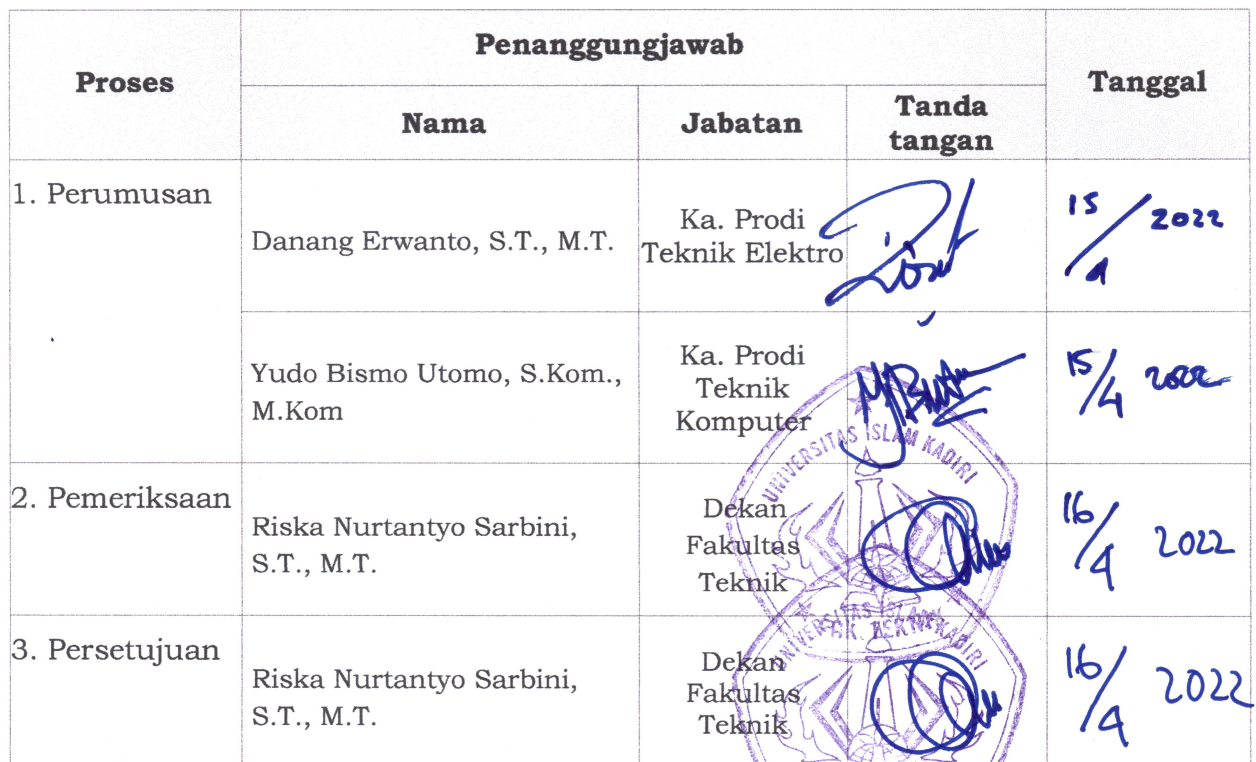 Proses
Penanggungjawab
Tanggal
Nama
Jabatan
Tanda
tangan
1. Perumusan
Danang Erwanto, S.T., M.T.
Ka. Prodi
Teknik Elektro
15/4 2022
Yudo Bismo Utomo, S.Kom.,
M.Kom
Ka. Prodi
Teknik
Komputer
15/4 2022
UNIVERSITAS ISLAM KADIRI
2. Pemeriksaan
Riska Nurtantyo Sarbini,
S.T., M.T.
Dekan
Fakultas
Teknik
16/4 2022
UNIVERSITAS ISLAM KADIRI
3. Persetujuan
Riska Nurtantyo Sarbini,
S.T., M.T.
Dekan
Fakultas
Teknik
16/4 2022